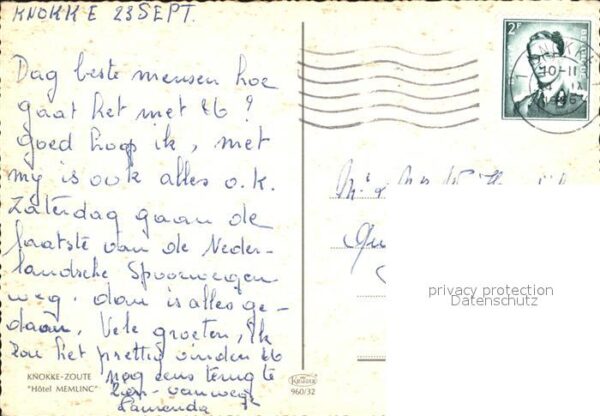 KNOKKE 23 SEPT.
Dag beste mensen hoe
gaat het met U ?
goed hoop ik, met
mij is ook alles o.k.
Zaterdag gaan de
laatste van de Neder-
landsche Spoorwegen
weg. dan is alles ge-
daan. Vele groeten, ik
zou het prettig vinden U
nog eens terug te
zien. vanwege
2F
KNOKKE
10-11
KNOKKE-ZOUTE
"Hôtel MEMLINC"
Krüger
960/32
privacy protection
Datenschutz